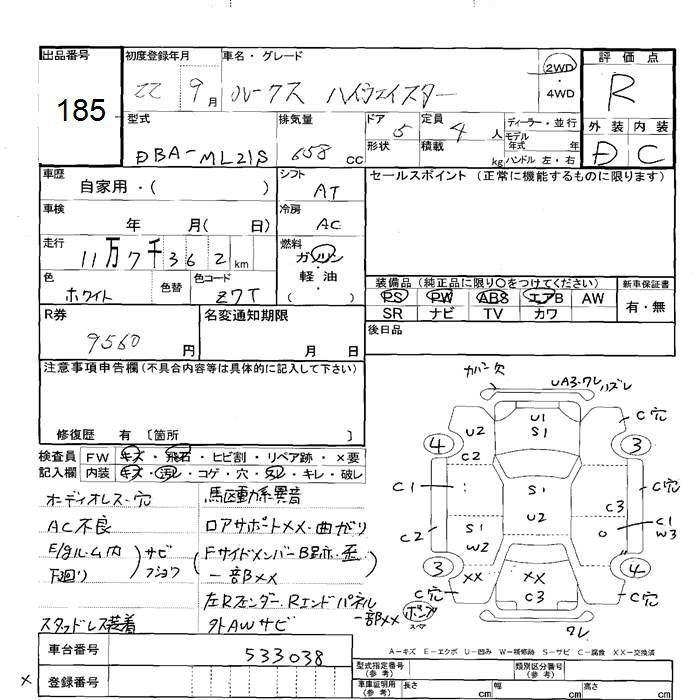 出品番号
185
初度登録年月
22 9月
車名・グレード
ルークス ハイウェイスター
2WD
・
4WD
評価点
R
型式
DBA-ML21S
排気量
658 cc
ドア
5
形状
定員
4 人
積載
kg
ディーラー・並行
モデル
年式 年
ハンドル 左・右
外装 内装
D C
車歴
自家用・( )
シフト
AT
セールスポイント (正常に機能するものに限ります)
車検
年 月( 日)
冷房
AC
走行
11万7千362km
燃料
ガソリン
・
軽油
( )
色
ホワイト
色替
色コード
Z7T
装備品 (純正品に限り○をつけてください)
新車保証書
PS PW ABS エアB AW
SR ナビ TV カワ
有・無
R券
9560 円
名変通知期限
月 日
後日品
注意事項申告欄 (不具合内容等は具体的に記入して下さい)
修復歴 有 〔箇所 〕
検査員
記入欄
FW キズ・飛石・ヒビ割・リペア跡・×要
内装 キズ・汚レ・コゲ・穴・スレ・キレ・破レ
オーディオレス・穴
AC不良
E/gルーム内
下廻り
サビ
フショク
スタッドレス装着
駆動系異音
ロアサポートメメ・曲がり
Fサイドメンバー
一部××
左Rフェンダー、Rエンドパネル
一部××
外AWサビ
カバー欠
UA3・ワレ ハズレ
U1
S1
U2
C2
C穴
4
3
C1
S1
U2
C3
C穴
C1
W3
C2
S1
W2
3
4
××
××
C3
C穴
C穴
ボンプ
スペア
ワレ
A-キズ E-エクボ U-凹み W-補修跡 S-サビ C-腐食 XX-交換済
車台番号
533038
× 登録番号
型式指定番号
(参考)
類別区分番号
(参考)
車庫証明用
(参考)
長さ cm
幅 cm
高さ cm